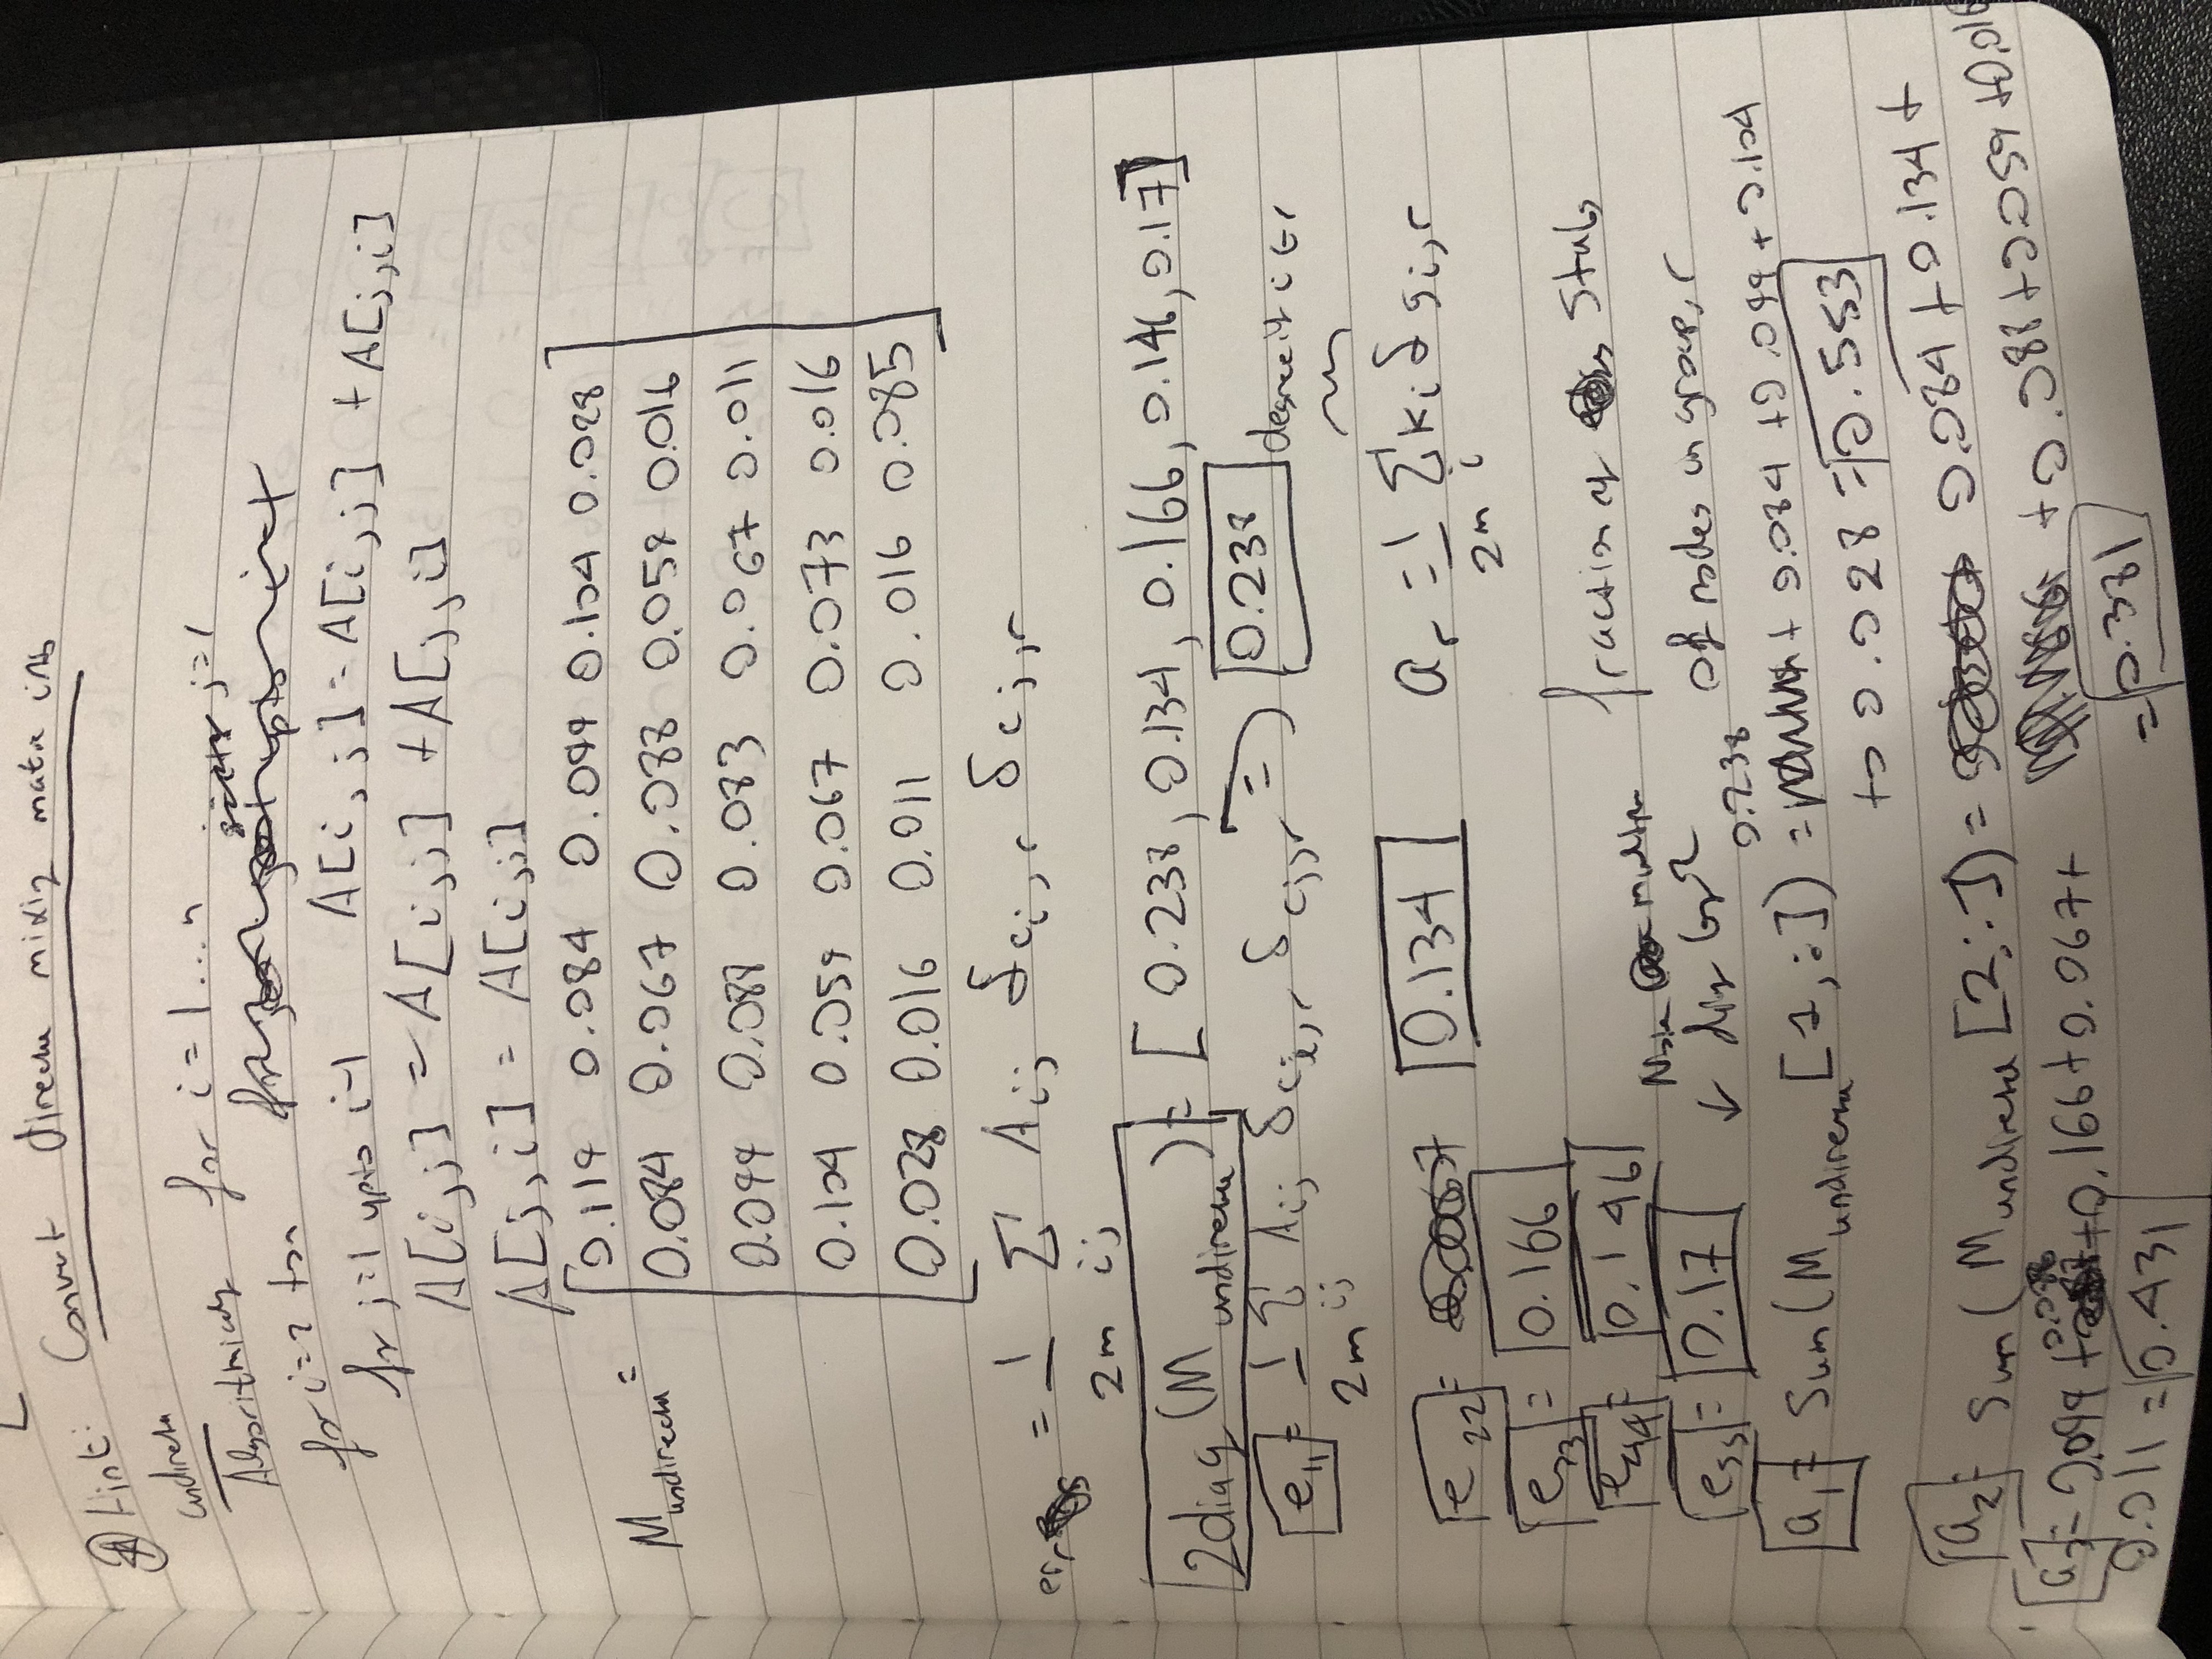 Hint: Convert directed mixing matrix into
undirected
Algorithmicaly for i = 1 ... n
j=1
for i=2 to n
for j=1 upto i-1 A[i,j] = A[i,j] + A[j,i]
A[i,j] = A[i,j] + A[j,i]
A[j,i] = A[i,j]
M undirected = [0.119 0.084 0.099 0.104 0.028
0.084 0.067 0.088 0.059 0.016
0.099 0.088 0.083 0.067 0.011
0.104 0.059 0.067 0.073 0.016
0.028 0.016 0.011 0.016 0.085]
err = 1/2m Σ ij Aij δci,r δcj,r
2diag(M undirected) = [0.238, 0.134, 0.166, 0.146, 0.17]
e11 = 1/2m Σ ij Aij δci,r δcj,r => 0.238
degree if i ∈ r
e22 = 0.134 ar = 1/2m Σ i ki δgi,r
e33 = 0.166
e44 = 0.146 fraction of stubs
e55 = 0.17 Note multiply
diag by 2 of nodes in group, r
a1 = Sum(M undirected [1,:]) = 0.238 + 0.084 + 0.099 + 0.104
+ 0.028 = 0.553
a2 = Sum(M undirected [2,:]) = 0.084 + 0.134 +
+ 0.088 + 0.059 + 0.016
= 0.381
a3 = 0.099 + 0.088 + 0.166 + 0.067 +
0.011 = 0.431